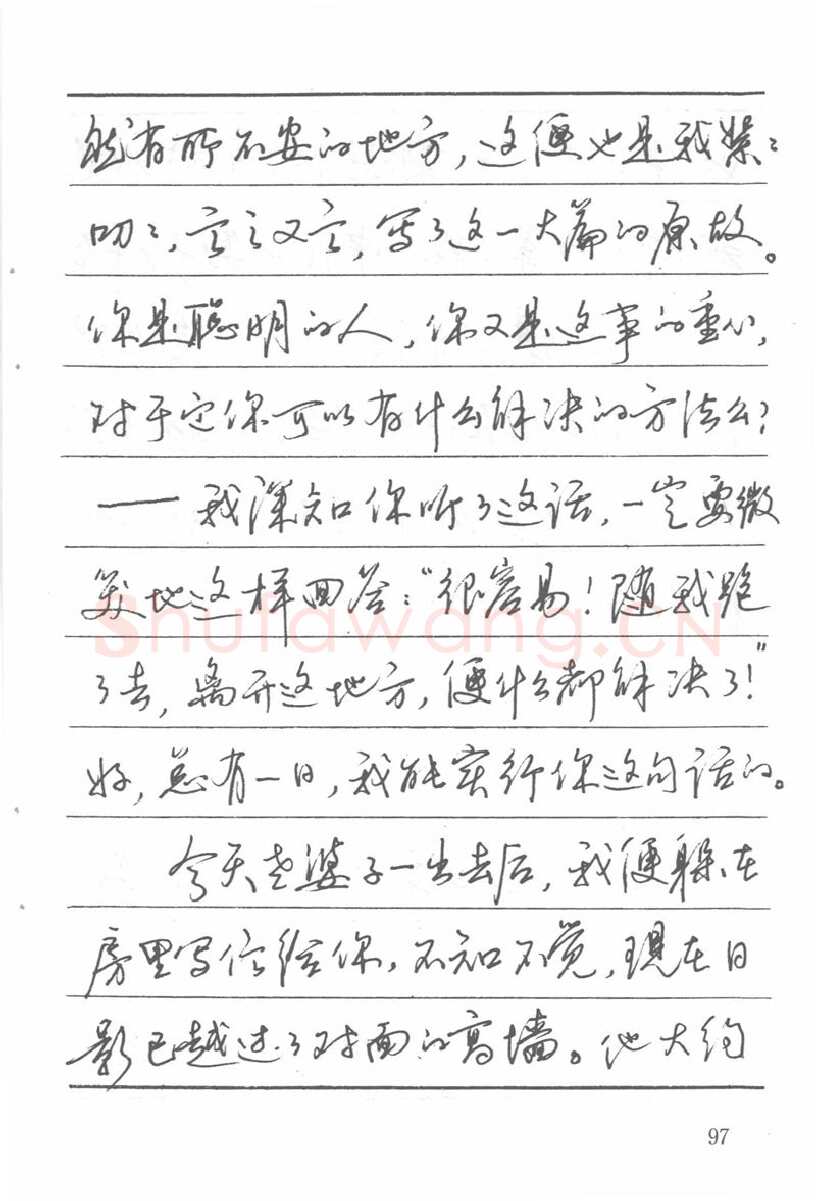 能有所不安的地方，这便也是我絮々
叨々，言之又言，写了这一大篇的原故。
你是聪明的人，你又是这事的重心，
对于它你可以有什么解决的方法么？
——我深知你听了这话，一定要微
笑地这样回答：“很容易！随我跑
了去，离开这地方，便什么都解决了！”
好，总有一日，我能实行你这句话的。
今天老婆子一出去后，我便躲在
房里写信给你，不知不觉，现在日
影已越过了对面的高墙。他大约
Shufawang.CN
97